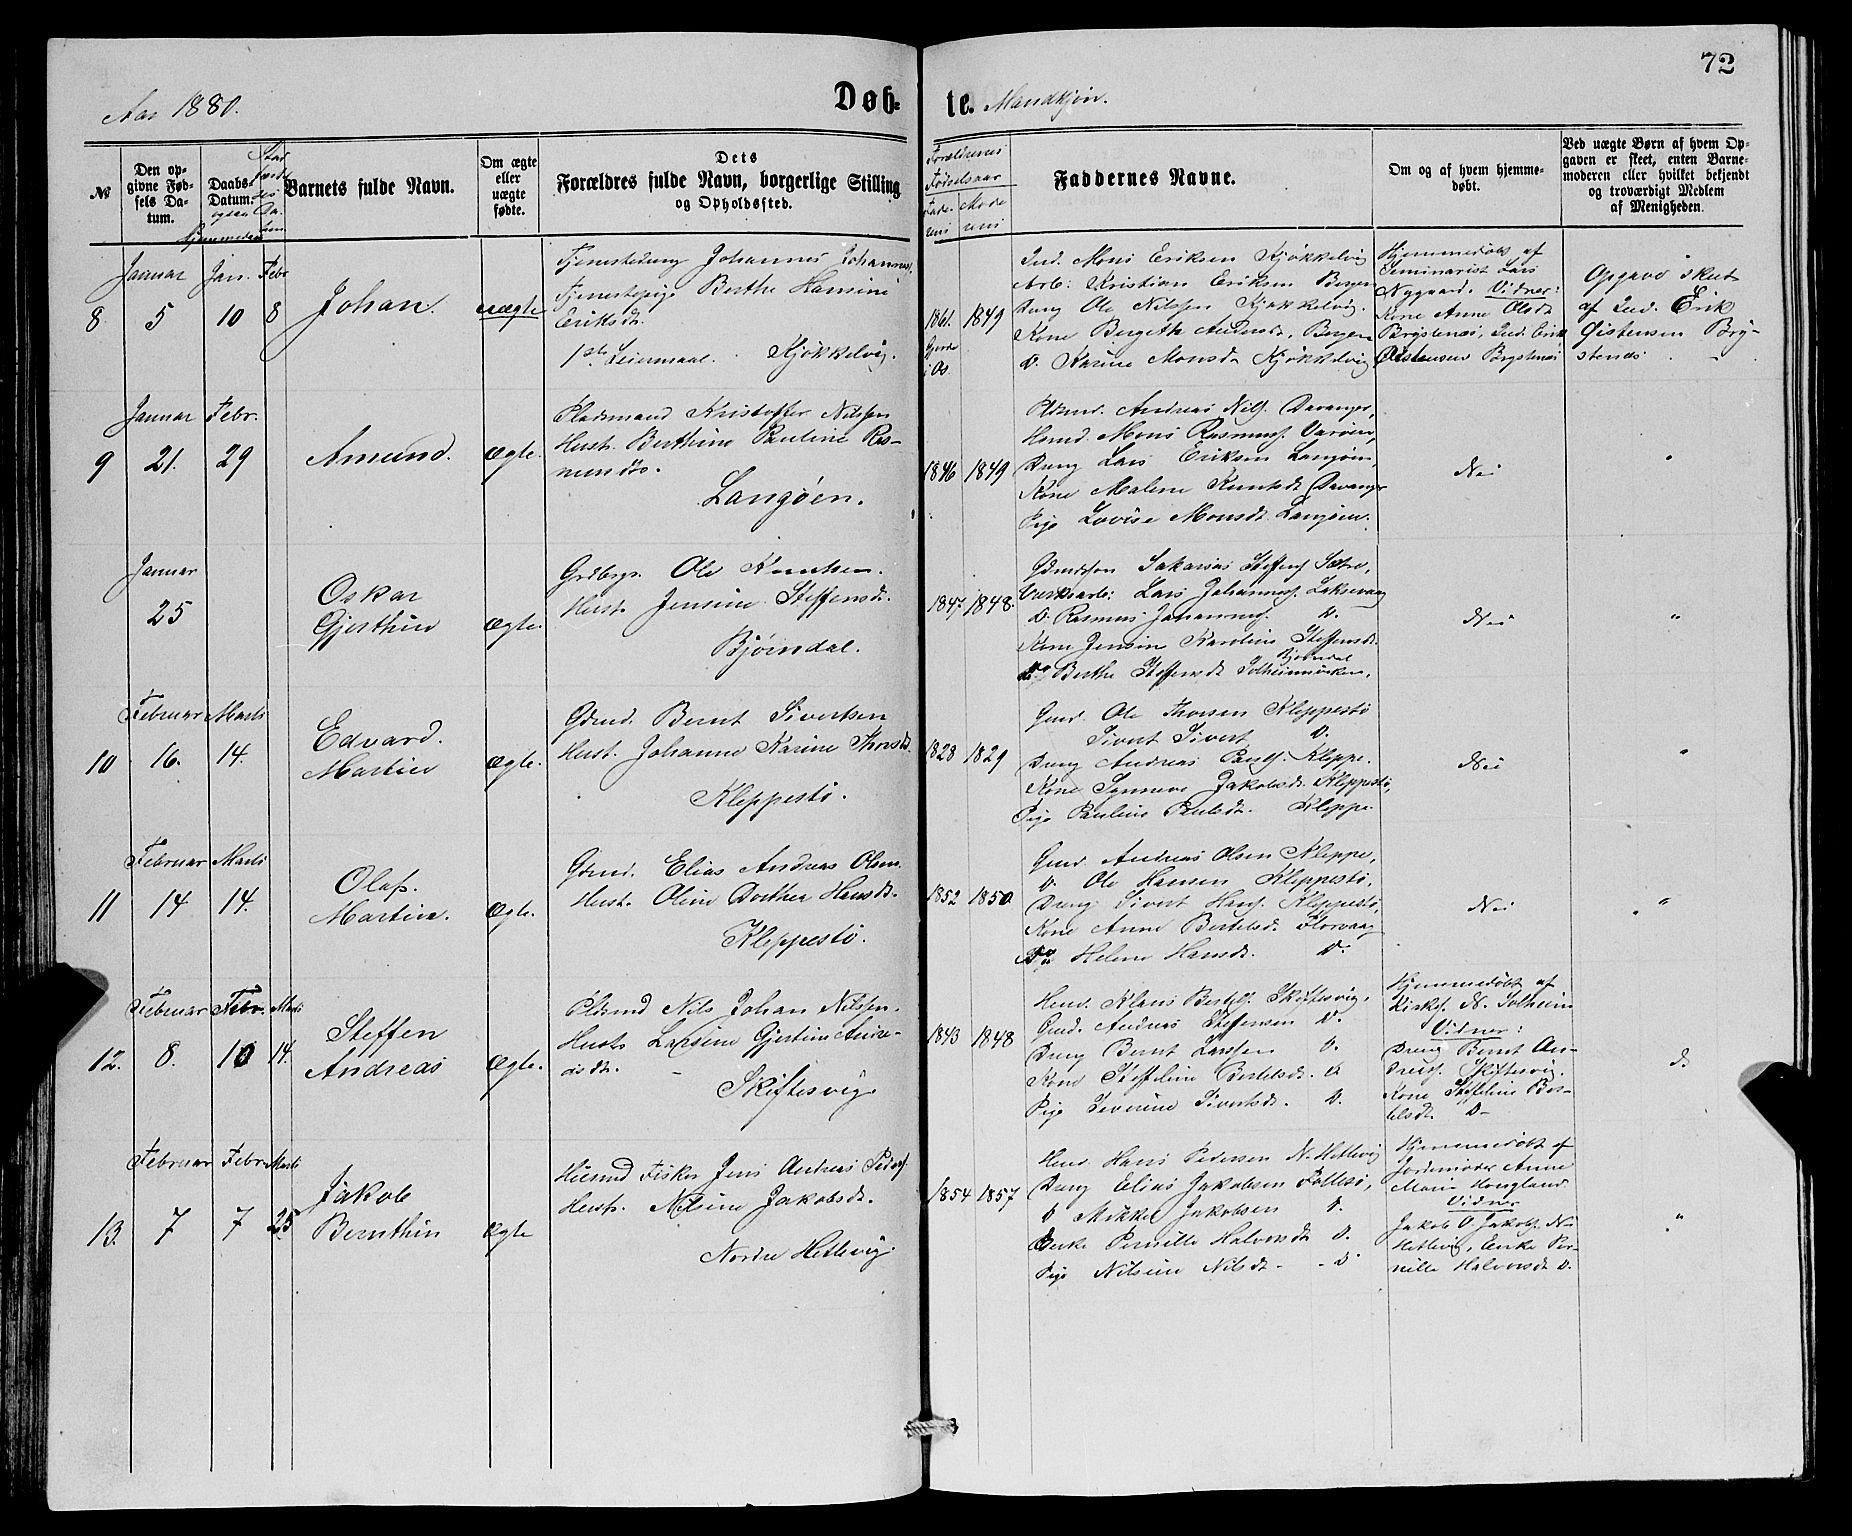 72
Aar 1880.
Døb-
te. Mandkjøn.
№
Den op-
givne Fød-
sels Da-
tum.
Daabs-
Datum.
Barnets fulde Navn.
Om ægte
eller
uægte
fødte.
Dets
Forældres fulde Navn, borgerlige Stilling
og Opholdssted.
Forældrenes
Fødselsaar
Faddernes Navne.
Om og af hvem hjemme-
døbt.
Ved uægte Børn af hvem Op-
gaven er skeet, enten Barne-
moderen eller hvilket bekjendt
og troværdigt Medlem
af Menigheden.
Januar Jan. Febr
8 5 10 8
Johan.
uægte
Tjenestedreng Johannes Johannes.
Tjenestepige Berthe Hansine
Eriksdt.
1ste Leiermaal. Kjøkkelvig.
1861. 1849
i Os.
Ind. Mons Eriksen Kjøkkelvig
Arb: Kristian Eriksen Bergen
Dreng Ole Nilssen Kjøkkelvig.
Kone Bergethe Andersdt, Bergen
D. Karine Monsdt Kjøkkelvig
Hjemmedøbt af
Seminarist Lars
Nygaard. Vidner:
Kone Anne Olsdt
Brystenes, Ind. Erik
Øistensen Brystenes
Opgave skeet
af Ind. Erik
Øistensen Bry-
stenes.
Januar Febr.
9 21. 29
Amund.
Ægte.
Pladsmand Kristoffer Nilssen
Hust. Berthine Pauline Ras-
mundts.
Langøen.
1846 1849
Pldsmd. Andreas Nils. Davanger,
Hsmd. Mons Rasmuss. Varøen,
Dreng Lars Eriksen Langøen,
Kone Malene Knutsdt Davanger
Pige Lovise Monsdt. Langøen.
Nei
"
Januar
25
Oskar
Gjerthin
Ægte.
Grdbrgr. Ole Knutsen.
Hust. Jensine Steffensdt.
Bjørndal.
1847. 1848.
Gdmdsøn Sakarias Steffens. Sætre,
Værftsarb: Lars Johanness. Laksevaag
D. Rasmus Johanness. D.
Kone Jensine Karoline Steffensdt.
Bjørndal
Do Berthe Steffensdt Solheimsviken.
Nei
"
Februar Marts
10 16. 14.
Edvard.
Martin
Ægte.
Gdmd. Bernt Sivertsen
Hust. Johanne Karine Thorsdt.
Kleppestø.
1828 1829
Gmd. Ole Thorsen Kleppestø
Sivert Sivert D.
Dreng Andreas Pauls. Kleppe.
Kone Synneve Jakobsdt. Kleppestø,
Pige Pauline Paulsdt. Kleppe
Nei
"
Februar Marts
11 14 14.
Olaf.
Martin.
Ægte.
Gdmd. Elias Andreas Olsen.
Hust. Oline Dorthea Hansdt.
Kleppestø.
1852 1850
Gmd. Andreas Olsen Kleppe,
D. Ole Hansen Kleppestø,
Dreng Sivert Hans. Kleppestø,
Kone Anne Bertelsdt. Florvaag
Do Helene Hansdt. D.
Nei
"
Februar Febr. Marts
12. 8. 10 14.
Steffen
Andreas
Ægte.
Pldsmd Nils Johan Nilssen.
Hust. Larsine Gjertine Andre-
asdt.
Skiftesvig
1843 1848
Hmd. Klaus Bertels. Skiftesvig.
Gmd. Andreas Steffensen D.
Dreng Bernt Larssen D.
Kone Steffeline Bertelsdt. D.
Pige Severine Sivertsdt. D.
Hjemmedøbt af
Kirkes. N. Solheim
Vidner:
Dreng Bernt An-
dreas. Skiftesvig.
Kone Steffeline Ber-
telsdt. D-
Februar Febr Marts
13. 7 7 25
Jakob
Bernthin
Ægte
Husmd Fisker Jens Andreas Peders.
Hust. Nilsine Jakobsdt.
Nordre Hetlevig.
1854 1857
Hmd. Hans Pedersen N. Hetlevig
Dreng Elias Jakobsen Follesø,
D Mikkel Jakobsen D.
Enke Pernille Halvorsdt D.
Pige Nilsine Nilsdt. - D
Hjemmedøbt af
Jordemoder Anne
Marie Hougland.
Vidner
Jakob O. Jakobs. N.
Hetlevig, Enke Per-
nille Halvorsdt D.
"